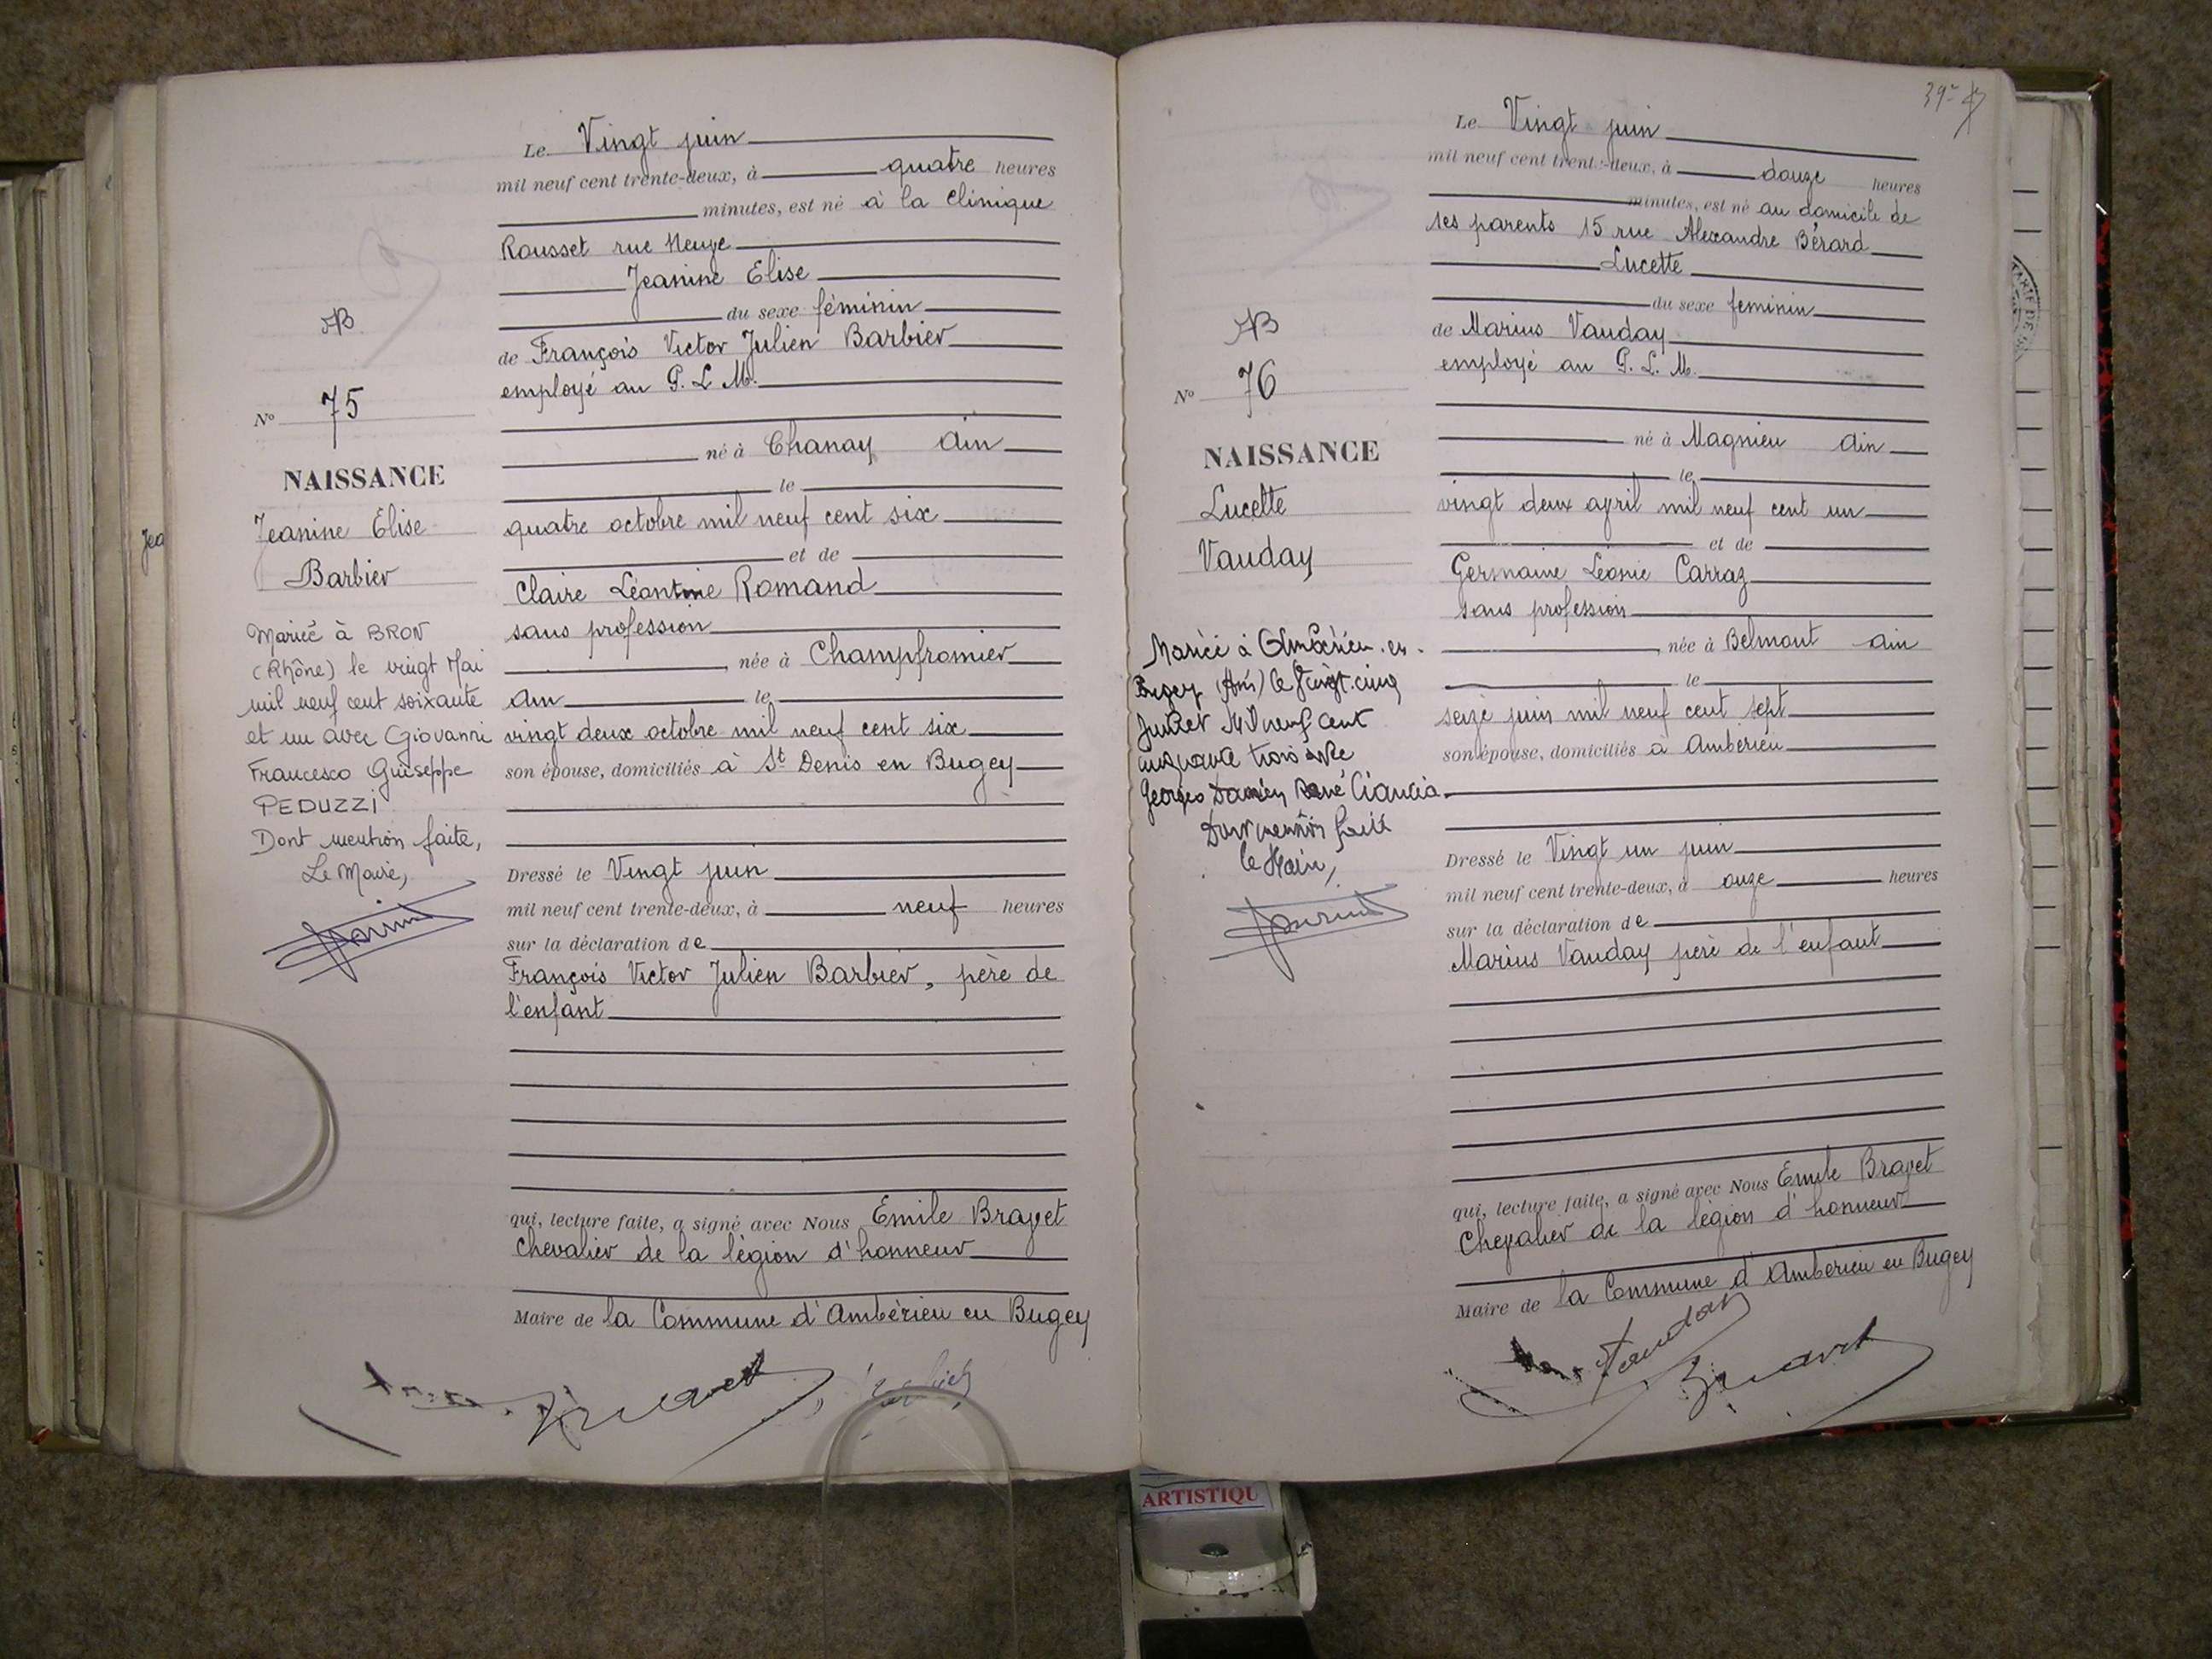 Le Vingt juin
mil neuf cent trente-deux, à quatre heures
minutes, est né à la Clinique
Rousset rue Neuve
Jeanine Elise
du sexe féminin
de François Victor Julien Barbier
employé au P.L.M.
né à Chanay Ain
le
quatre octobre mil neuf cent six
et de
Claire Léontine Romand
sans profession
née à Champfromier
Ain le
vingt deux octobre mil neuf cent six
son épouse, domiciliés à St Denis en Bugey
Dressé le Vingt juin
mil neuf cent trente-deux, à neuf heures
sur la déclaration de
François Victor Julien Barbier, père de
l'enfant
qui, lecture faite, a signé avec Nous Emile Bravet
Chevalier de la légion d'honneur
Maire de la Commune d'Ambérieu en Bugey
Bravet
N° 75
NAISSANCE
Jeanine Elise
Barbier
Mariée à BRON
(Rhône) le vingt Mai
mil neuf cent soixante
et un avec Giovanni
Francesco Guiseppe
PEDUZZI
Dont mention faite,
Le Maire,
Jea
39
Le Vingt juin
mil neuf cent trente-deux, à douze heures
minutes, est né au domicile de
ses parents 15 rue Alexandre Bérard
Lucette
du sexe feminin
de Marius Vauday
employé au P.L.M.
né à Magnieu Ain
le
vingt deux avril mil neuf cent un
et de
Germaine Léonie Carraz
sans profession
née à Belmont Ain
le
seize juin mil neuf cent sept
son épouse, domiciliés à Ambérieu
Dressé le Vingt un juin
mil neuf cent trente-deux, à onze heures
sur la déclaration de
Marius Vauday père de l'enfant
qui, lecture faite, a signé avec Nous Emile Bravet
Chevalier de la légion d'honneur
Maire de la Commune d'Ambérieu en Bugey
Vauday
Bravet
N° 76
NAISSANCE
Lucette
Vauday
Mariée à Ambérieu-en-
Bugey (Ain) le Vingt-cinq
Juillet Mil neuf cent
cinquante trois avec
Georges Damien René Ciancia
Dont mention faite
le Maire,
ARTISTIQU